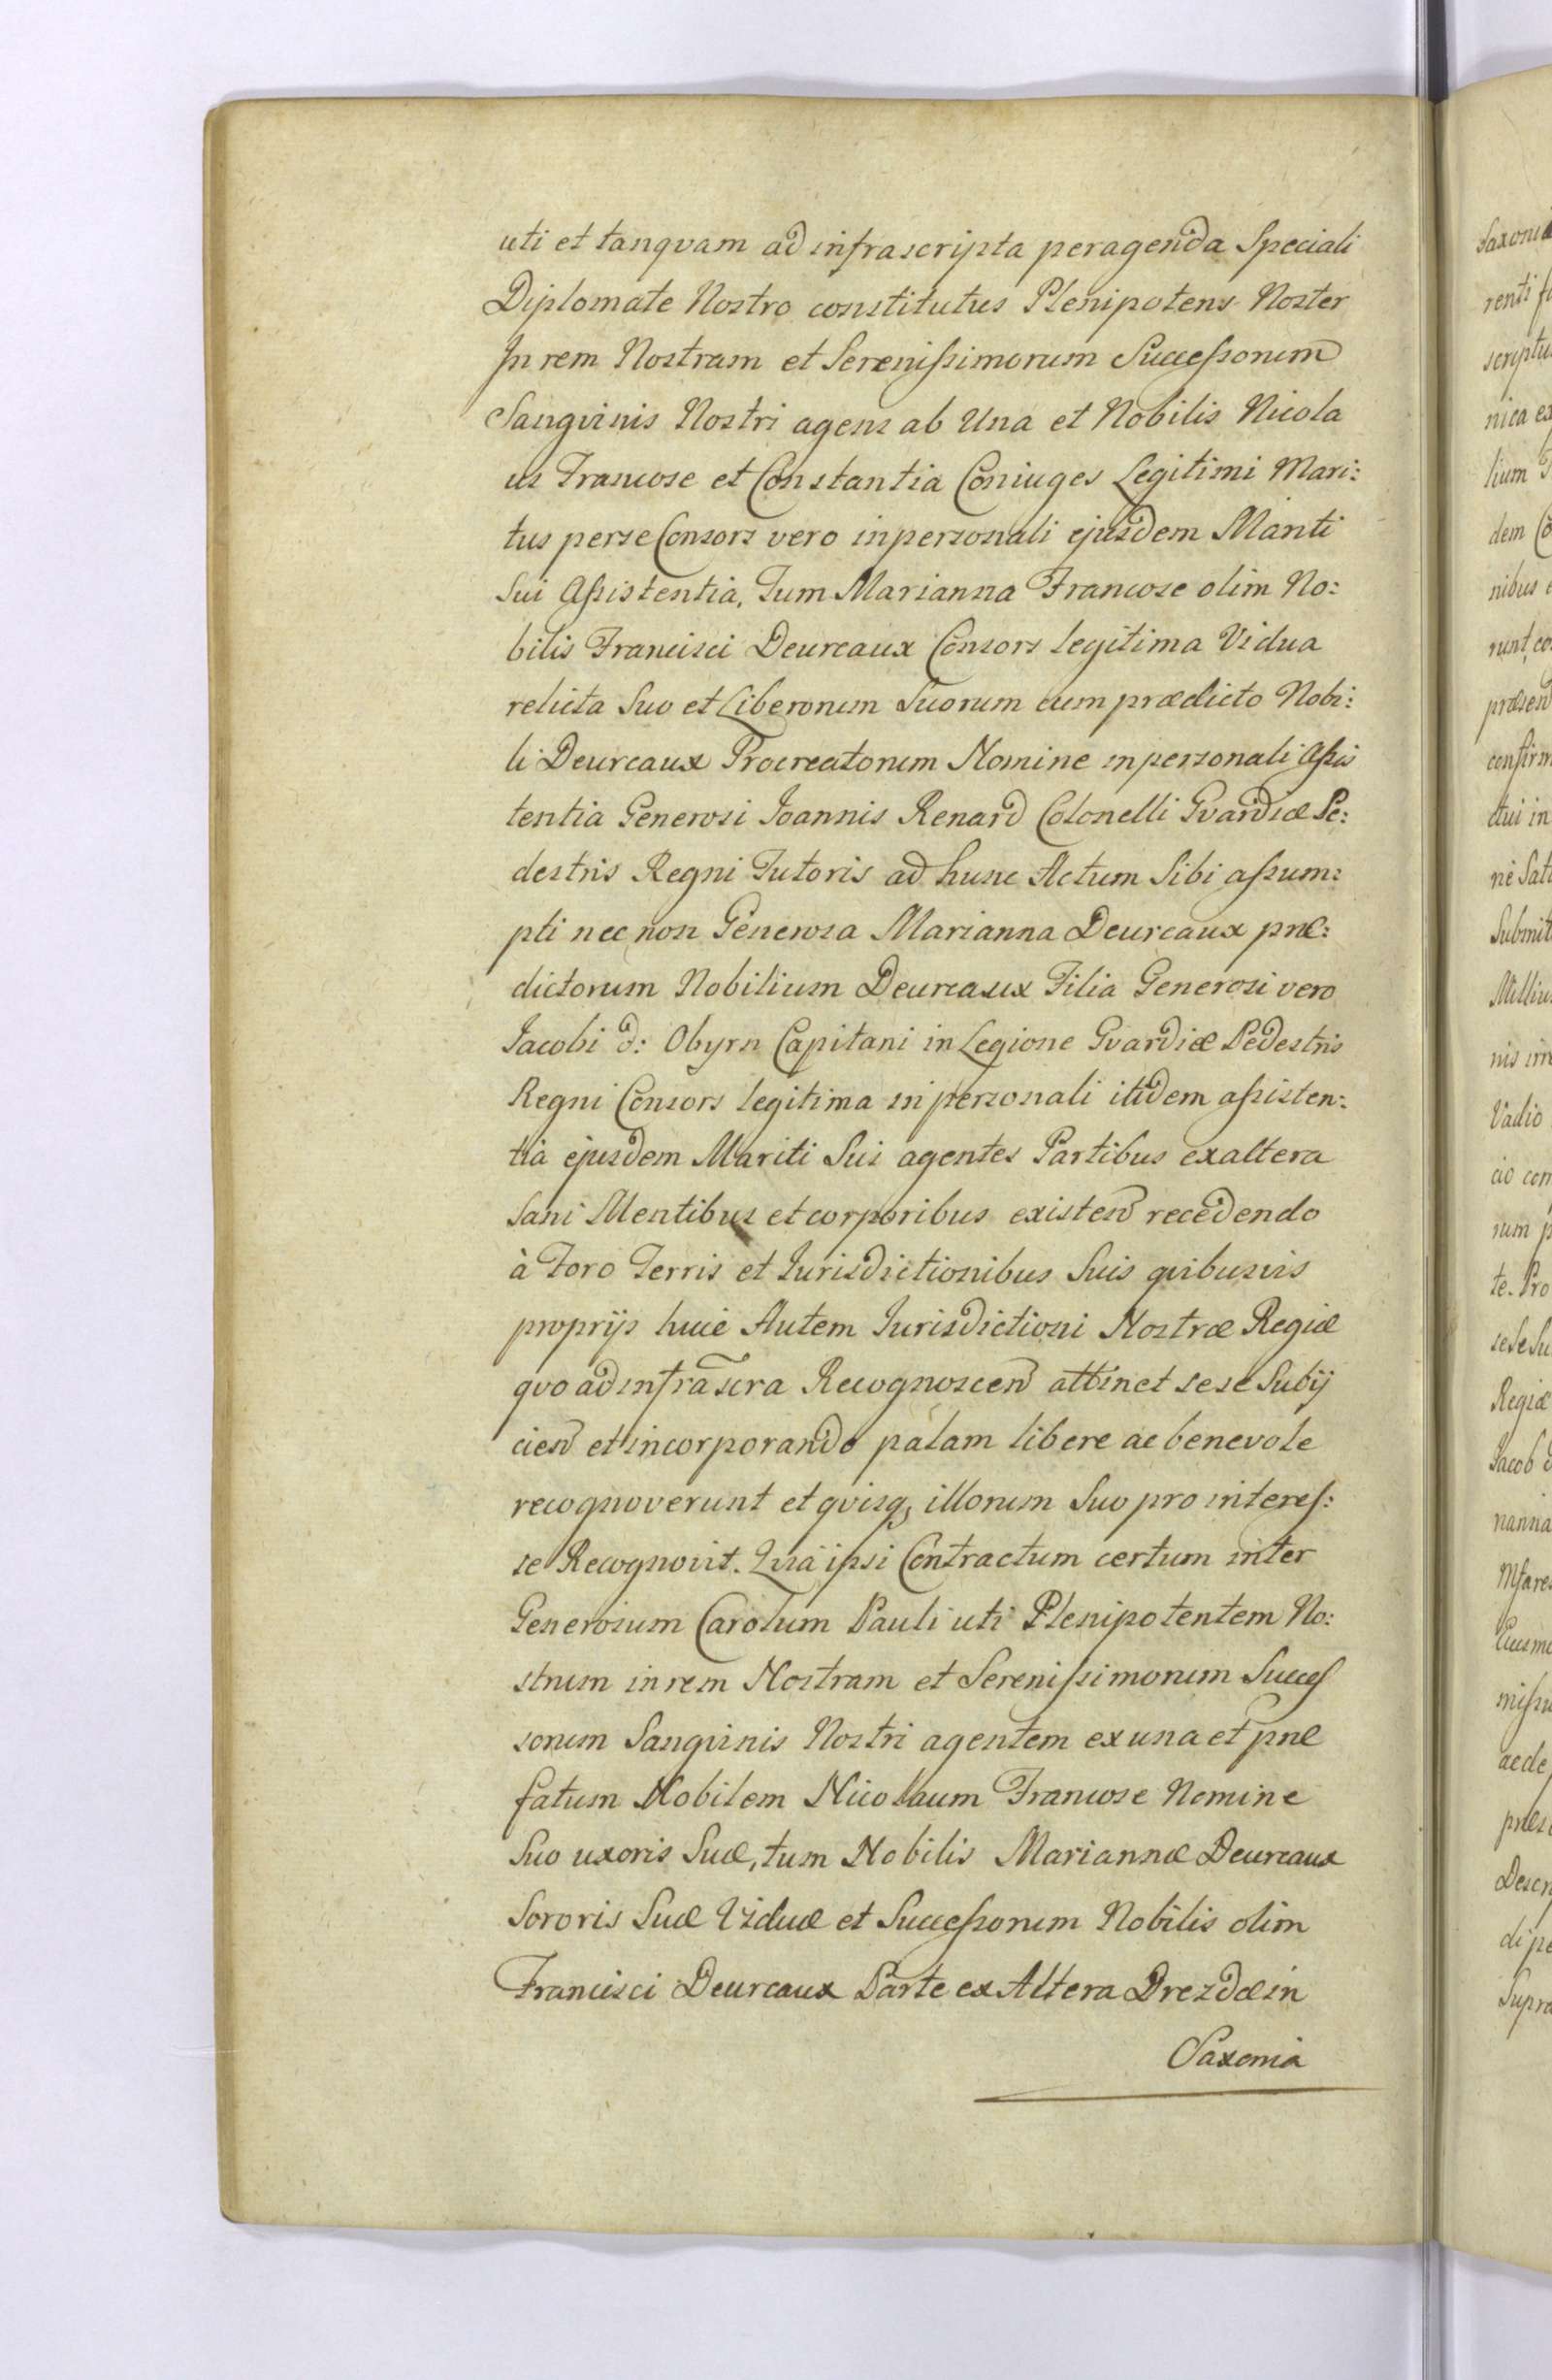 uti et tanqvam ad infrascripta peragenda Speciali
Diplomate Nostro constitutus Plenipotens Noster
In rem Nostram et Serenissimorum Successorum
Sangvinis Nostri agens ab Una et Nobilis Nicola
us Francose et Constantia Coniuges Legitimi Mari:
tus perse Consors vero inpersonali ejusdem Mariti
Sui Assistentia, Tum Marianna Francose olim No:
bilis Francisci Deureaux Consors legitima Vidua
relicta Suo et Liberorum Suorum cum prædicto Nobi:
li Deureaux Procreatorum Nomine inpersonali Assis
tentia Generosi Joannis Renard Colonelli Gvardiæ Pe:
destris Regni Tutoris ad hunc Actum Sibi assum:
pti nec non Generosa Marianna Deureaux præ:
dictorum Nobilium Deureaux Filia Generosi vero
Jacobi d: Obyrn Capitani in Legione Gvardiæ Pedestris
Regni Consors legitima in personali itidem assisten:
tia ejusdem Mariti Sui agentes Partibus exaltera
Sani Mentibus et corporibus existen recedendo
à Foro Terris et Jurisdictionibus Suis qvibusvis
proprijs huic Autem Jurisdictioni Nostræ Regiæ
qvo ad infrascra Recognoscen attinet sese Subij
cien et incorporando palam libere ac benevole
recognoverunt et qvisq, illorum Suo pro interes:
se Recognovit. Qvia ipsi Contractum certum inter
Generosum Carolum Pauli uti Plenipotentem No:
strum in rem Nostram et Serenissimorum Succes
sorum Sangvinis Nostri agentem ex una et præ
fatum Nobilem Nicolaum Francose Nomine
Suo uxoris Suæ, tum Nobilis Mariannæ Deureaux
Sororis Suæ Viduæ et Successorum Nobilis olim
Francisci Deureaux Parte ex Altera Drezdæ in
Saxonia